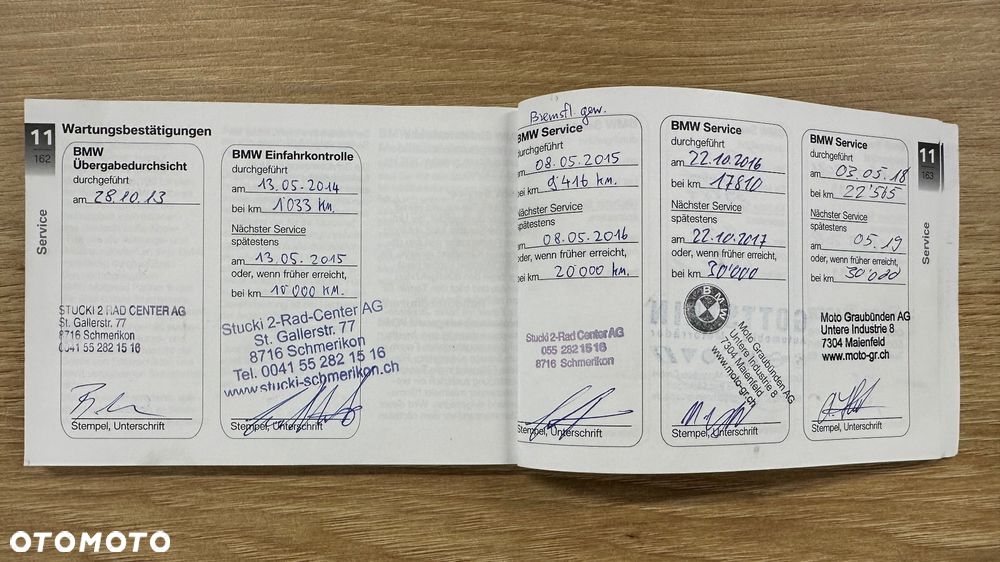 11
162
Service
Wartungsbestätigungen
BMW
Übergabedurchsicht
durchgeführt
am 28.10.13
STUCKI 2 RAD CENTER AG
St. Gallerstr. 77
8716 Schmerikon
0041 55 282 15 16
BMW Einfahrkontrolle
durchgeführt
am 13.05.2014
bei km 1'033 km.
Nächster Service
spätestens
am 13.05.2015
oder, wenn früher erreicht,
bei km 10'000 km.
Stucki 2-Rad-Center AG
St. Gallerstr. 77
8716 Schmerikon
Tel. 0041 55 282 15 16
www.stucki-schmerikon.ch
Stempel, Unterschrift
Stempel, Unterschrift
Bremsfl. gew.
BMW Service
durchgeführt
am 08.05.2015
bei km 9'416 km.
Nächster Service
spätestens
am 08.05.2016
oder, wenn früher erreicht,
bei km 20'000 km.
Stucki 2-Rad Center AG
055 282 15 16
8716 Schmerikon
Stempel, Unterschrift
BMW Service
durchgeführt
am 22.10.2016
bei km 17810
Nächster Service
spätestens
am 22.10.2017
oder, wenn früher erreicht,
bei km 30'000
BMW
Moto Graubünden AG
Untere Industrie 8
7304 Maienfeld
www.moto-gr.ch
Stempel, Unterschrift
BMW Service
durchgeführt
am 03.05.18
bei km 22'565
Nächster Service
spätestens
am 05.19
oder, wenn früher erreicht,
bei km 30'000
Moto Graubünden AG
Untere Industrie 8
7304 Maienfeld
www.moto-gr.ch
Stempel, Unterschrift
11
163
Service
OTOMOTO